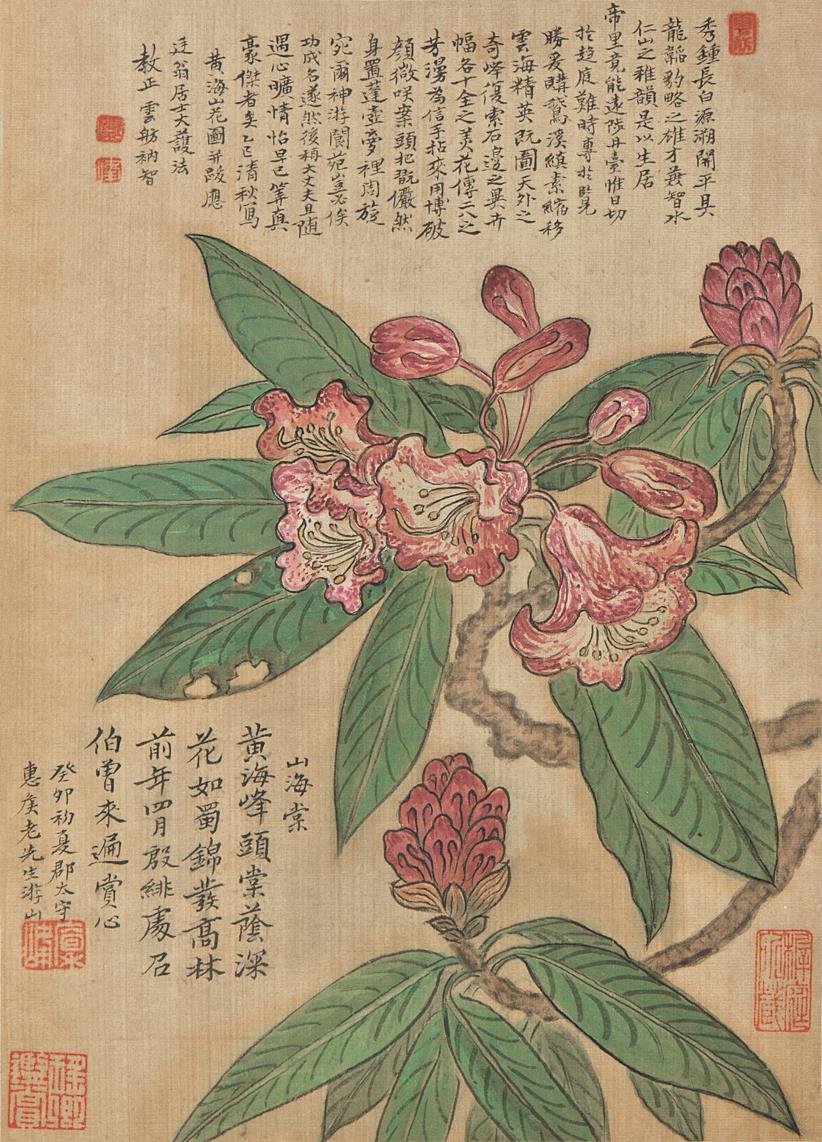 秀鍾長白源溯開平具
龍韜豹略之雄才蕺智水
仁山之雅韻是以生居
帝里竟能遠陟丹臺惟日切
於趨庭難時專於臨見
勝爰購鵞溪縝素縮移
雲海精英既圖天外之
奇峰復索石邊之異卉
幅各十全之美花傳二八之
芳漫為信手拈來用博破
顏微咲案頭把翫儼然
身置蓬壺夢裡周旋
宛爾神游閬苑豈必俟
功成名遂然後稱大丈夫且随
遇心曠情怡早已等真
豪傑者矣乙巳清秋寫
黃海山花圖并跋應
廷翁居士大護法
教正 雲舫衲智
山海棠
黃海峰頭棠蔭深
花如蜀錦發高林
前年四月殷緋處召
伯曾來遍賞心
癸卯初夏郡太守
惠侯老先生游山